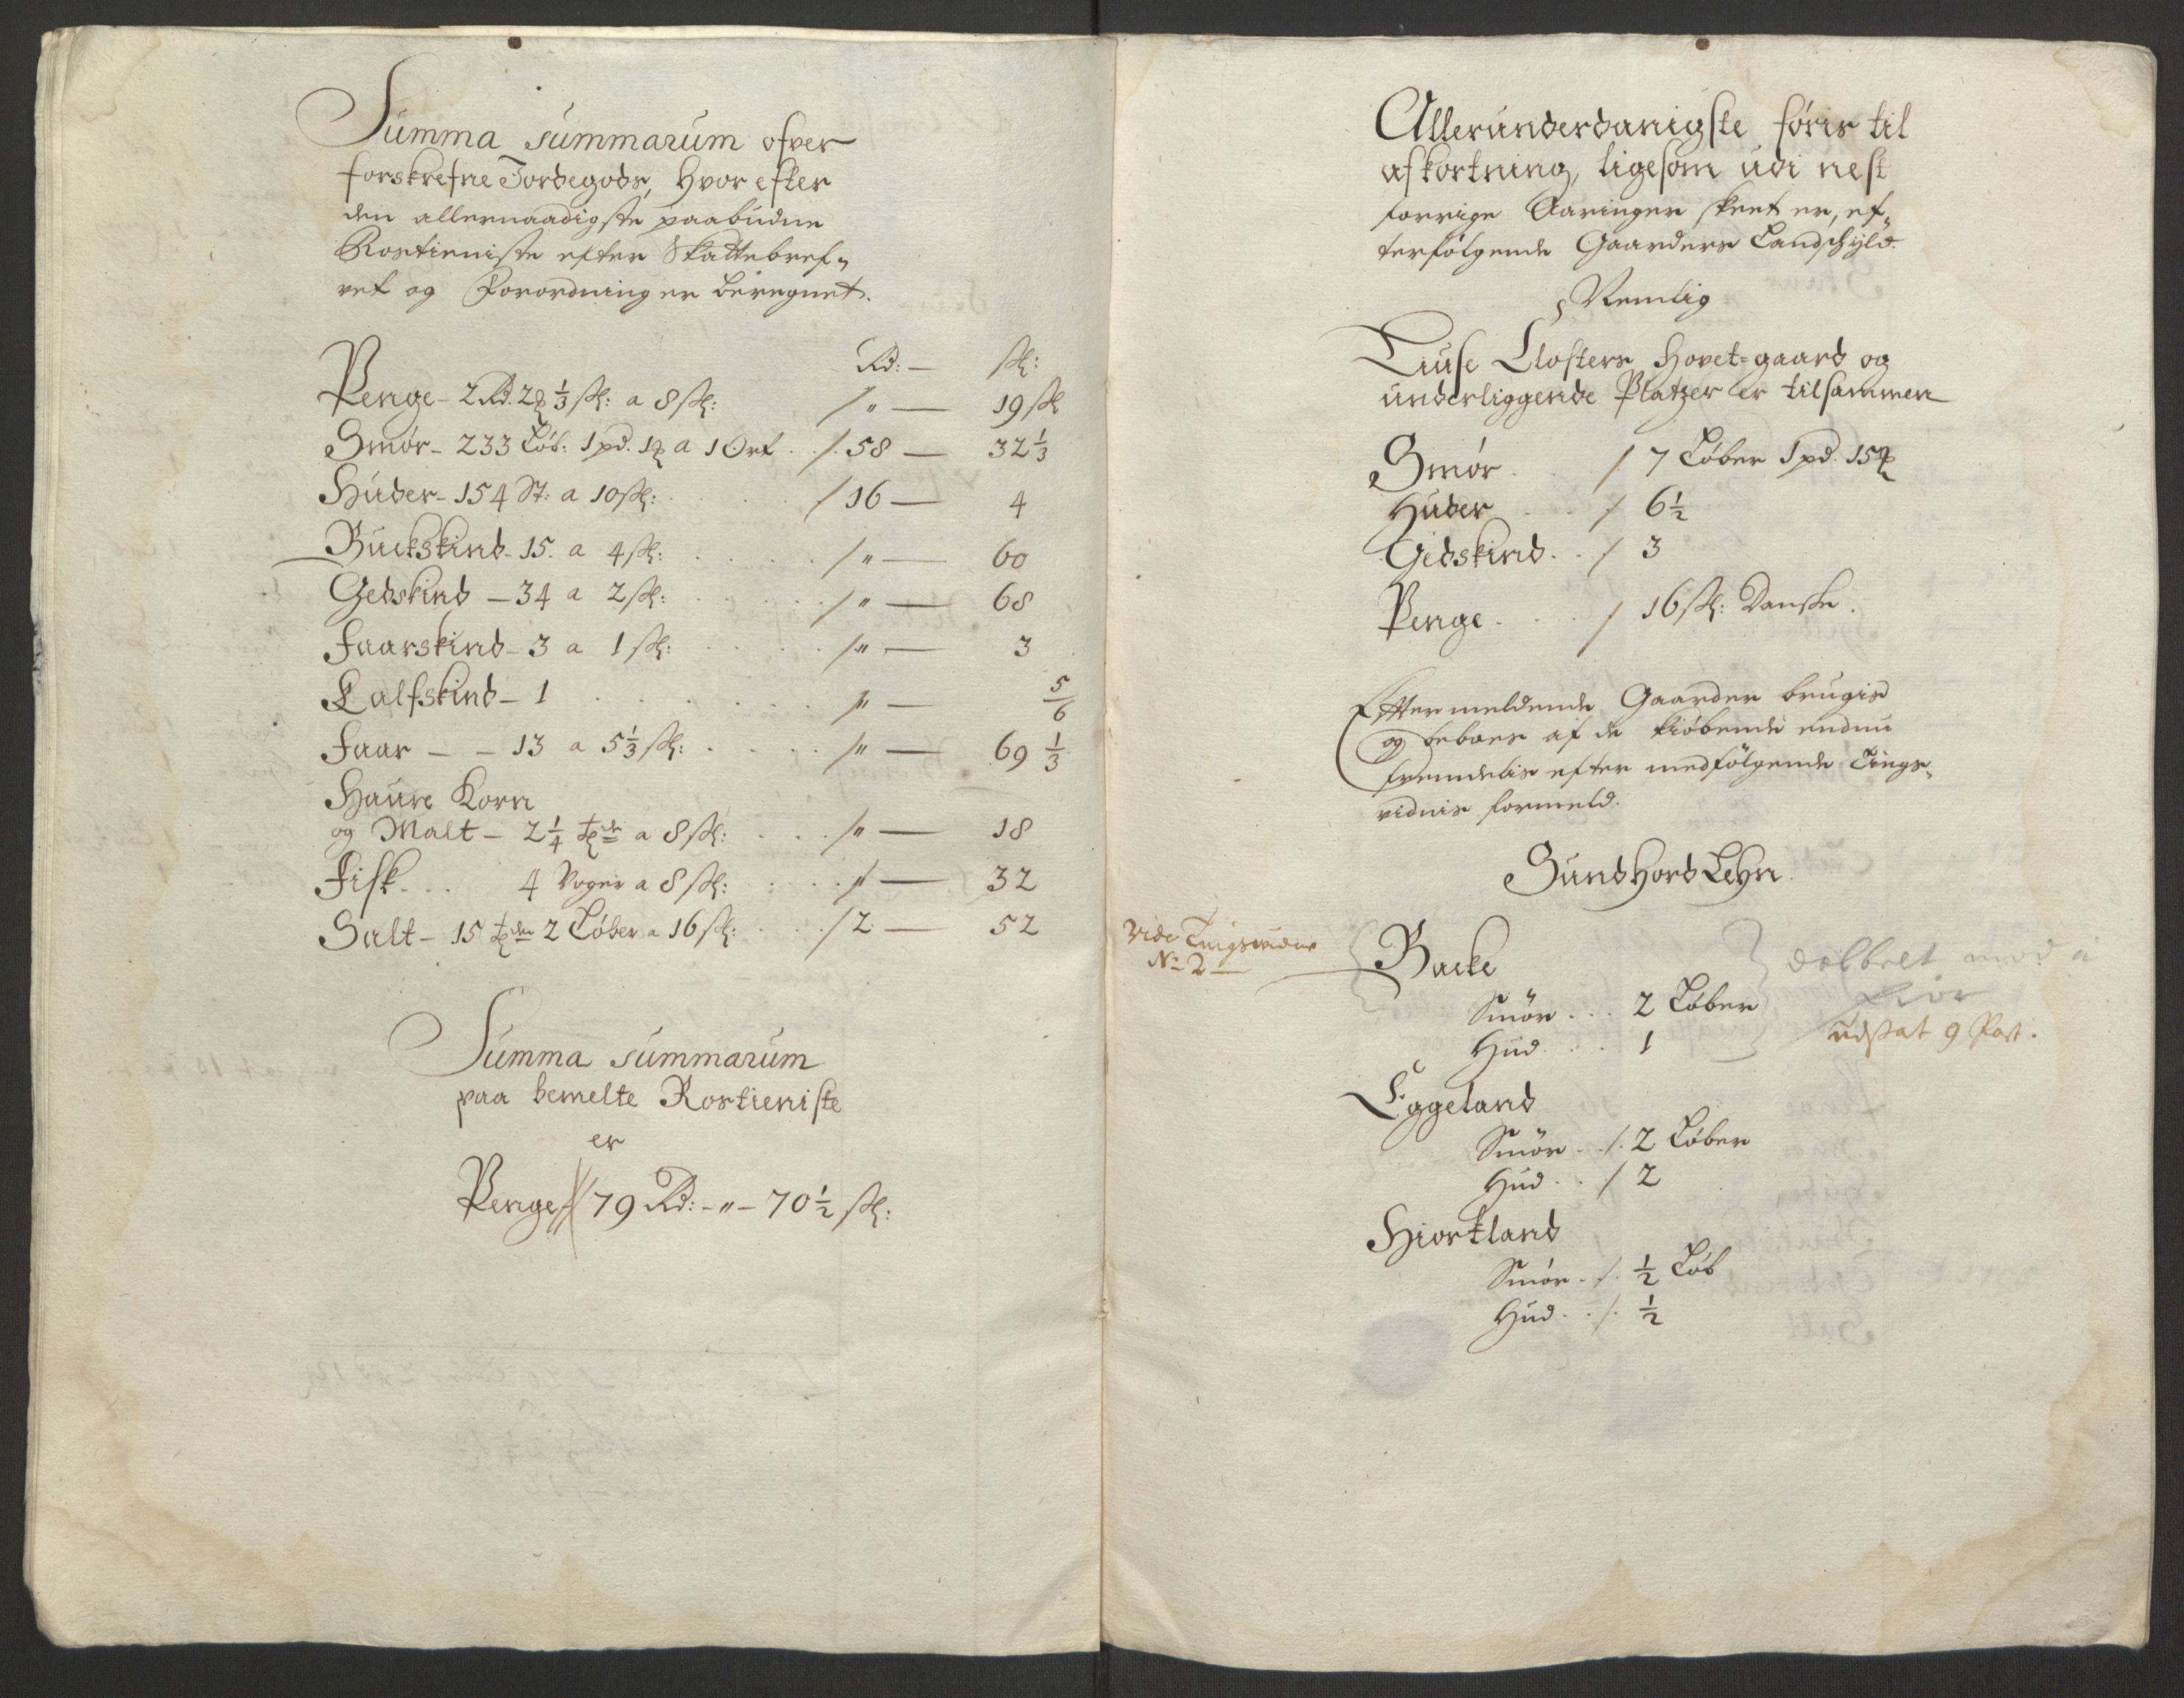 Summa summarum ofver
forskrefne Jordegods, hvorefter
den allernaadigste paabudne
Rostieniste efter Skattebref-
vet og Forordninger beregnet.
Rd: — sk:
Penge - 2 Rd. 2 ℔ 1/3 sk: a 8 sk: / " — 19 sk
Smör - 233 Löb: 1 pd. 1 ℔ a 1 Ort . /. 58 — 32 1/3
Huder - 154 St: a 10 sk: / 16 — 4
Buckskind - 15. a 4 sk: / " — 60
Gedskind — 34 a 2 sk: / " — 68
Faarskind - 3 a 1 sk: / " — 3
Kalfskind - 1 / " — 5/6
Faar — - 13 a 5 1/3 sk: / " — 69 1/3
Haure Korn
og Malt — 2 1/4 tde a 8 sk: / " — 18
Fisk . . . 4 Voger a 8 sk: / " — 32
Salt — 15 tder 2 Löber a 16 sk: / 2 — 52
Summa summarum
paa bemelte Rostieniste
er
Penge // 79 Rd: - " - 70 1/2 sk:
Allerunderdanigste föris til
afkortning, ligesom udi nest
forrige Aaringer skeet er, ef-
terfölgende Gaarders Landschyld.
Nemlig
Liuse Closters Hovet=gaard og
underliggende Platzer er tilsammen
Smör . . / 7 Löber 1 pd. 15 ℔
Huder . . / 6 1/2
Gedskind . . / 3
Penge . . . / 16 sk: Danske.
Effter meldende Gaarder brugis
og beboes af de kiöbende endnu
fremdelis efter medfölgende Tings-
vidnis formeld.
SundhordLehn.
Vide Tingsvidne
No 2 —
Backe
dobbelt mod
Smör . . . 2 Löber
udsat 9 Post.
Hud . . . 1
Eggeland
Smör . . /. 2 Löber
Hud . . / 2
Hiortland
Smör . /. 1/2 Löb
Hud . . /. 1/2